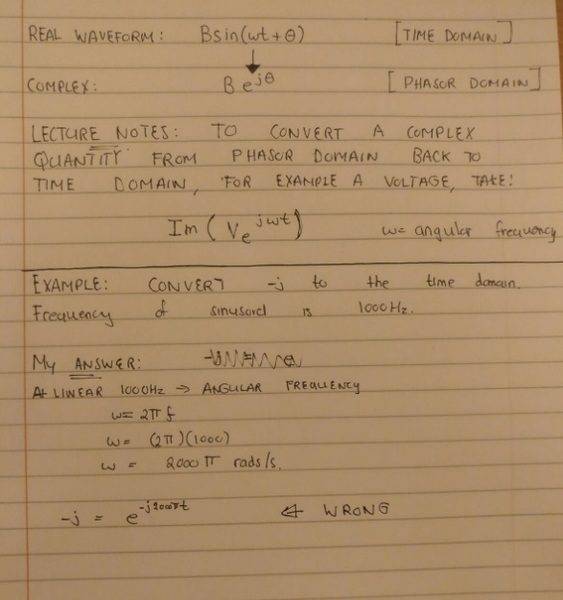 REAL WAVEFORM: Bsin(ωt + θ) [TIME DOMAIN]
COMPLEX: B e^jθ [PHASOR DOMAIN]
LECTURE NOTES: TO CONVERT A COMPLEX
QUANTITY FROM PHASOR DOMAIN BACK TO
TIME DOMAIN, FOR EXAMPLE A VOLTAGE, TAKE:
Im ( V e^jωt ) ω= angular frequency
EXAMPLE: CONVERT -j to the time domain.
Frequency of sinusoid is 1000Hz.
My ANSWER:
At LINEAR 1000Hz → ANGULAR FREQUENCY
ω= 2π f
ω= (2π)(1000)
ω = 2000 π rads/s.
-j = e^-j2000πt ← WRONG